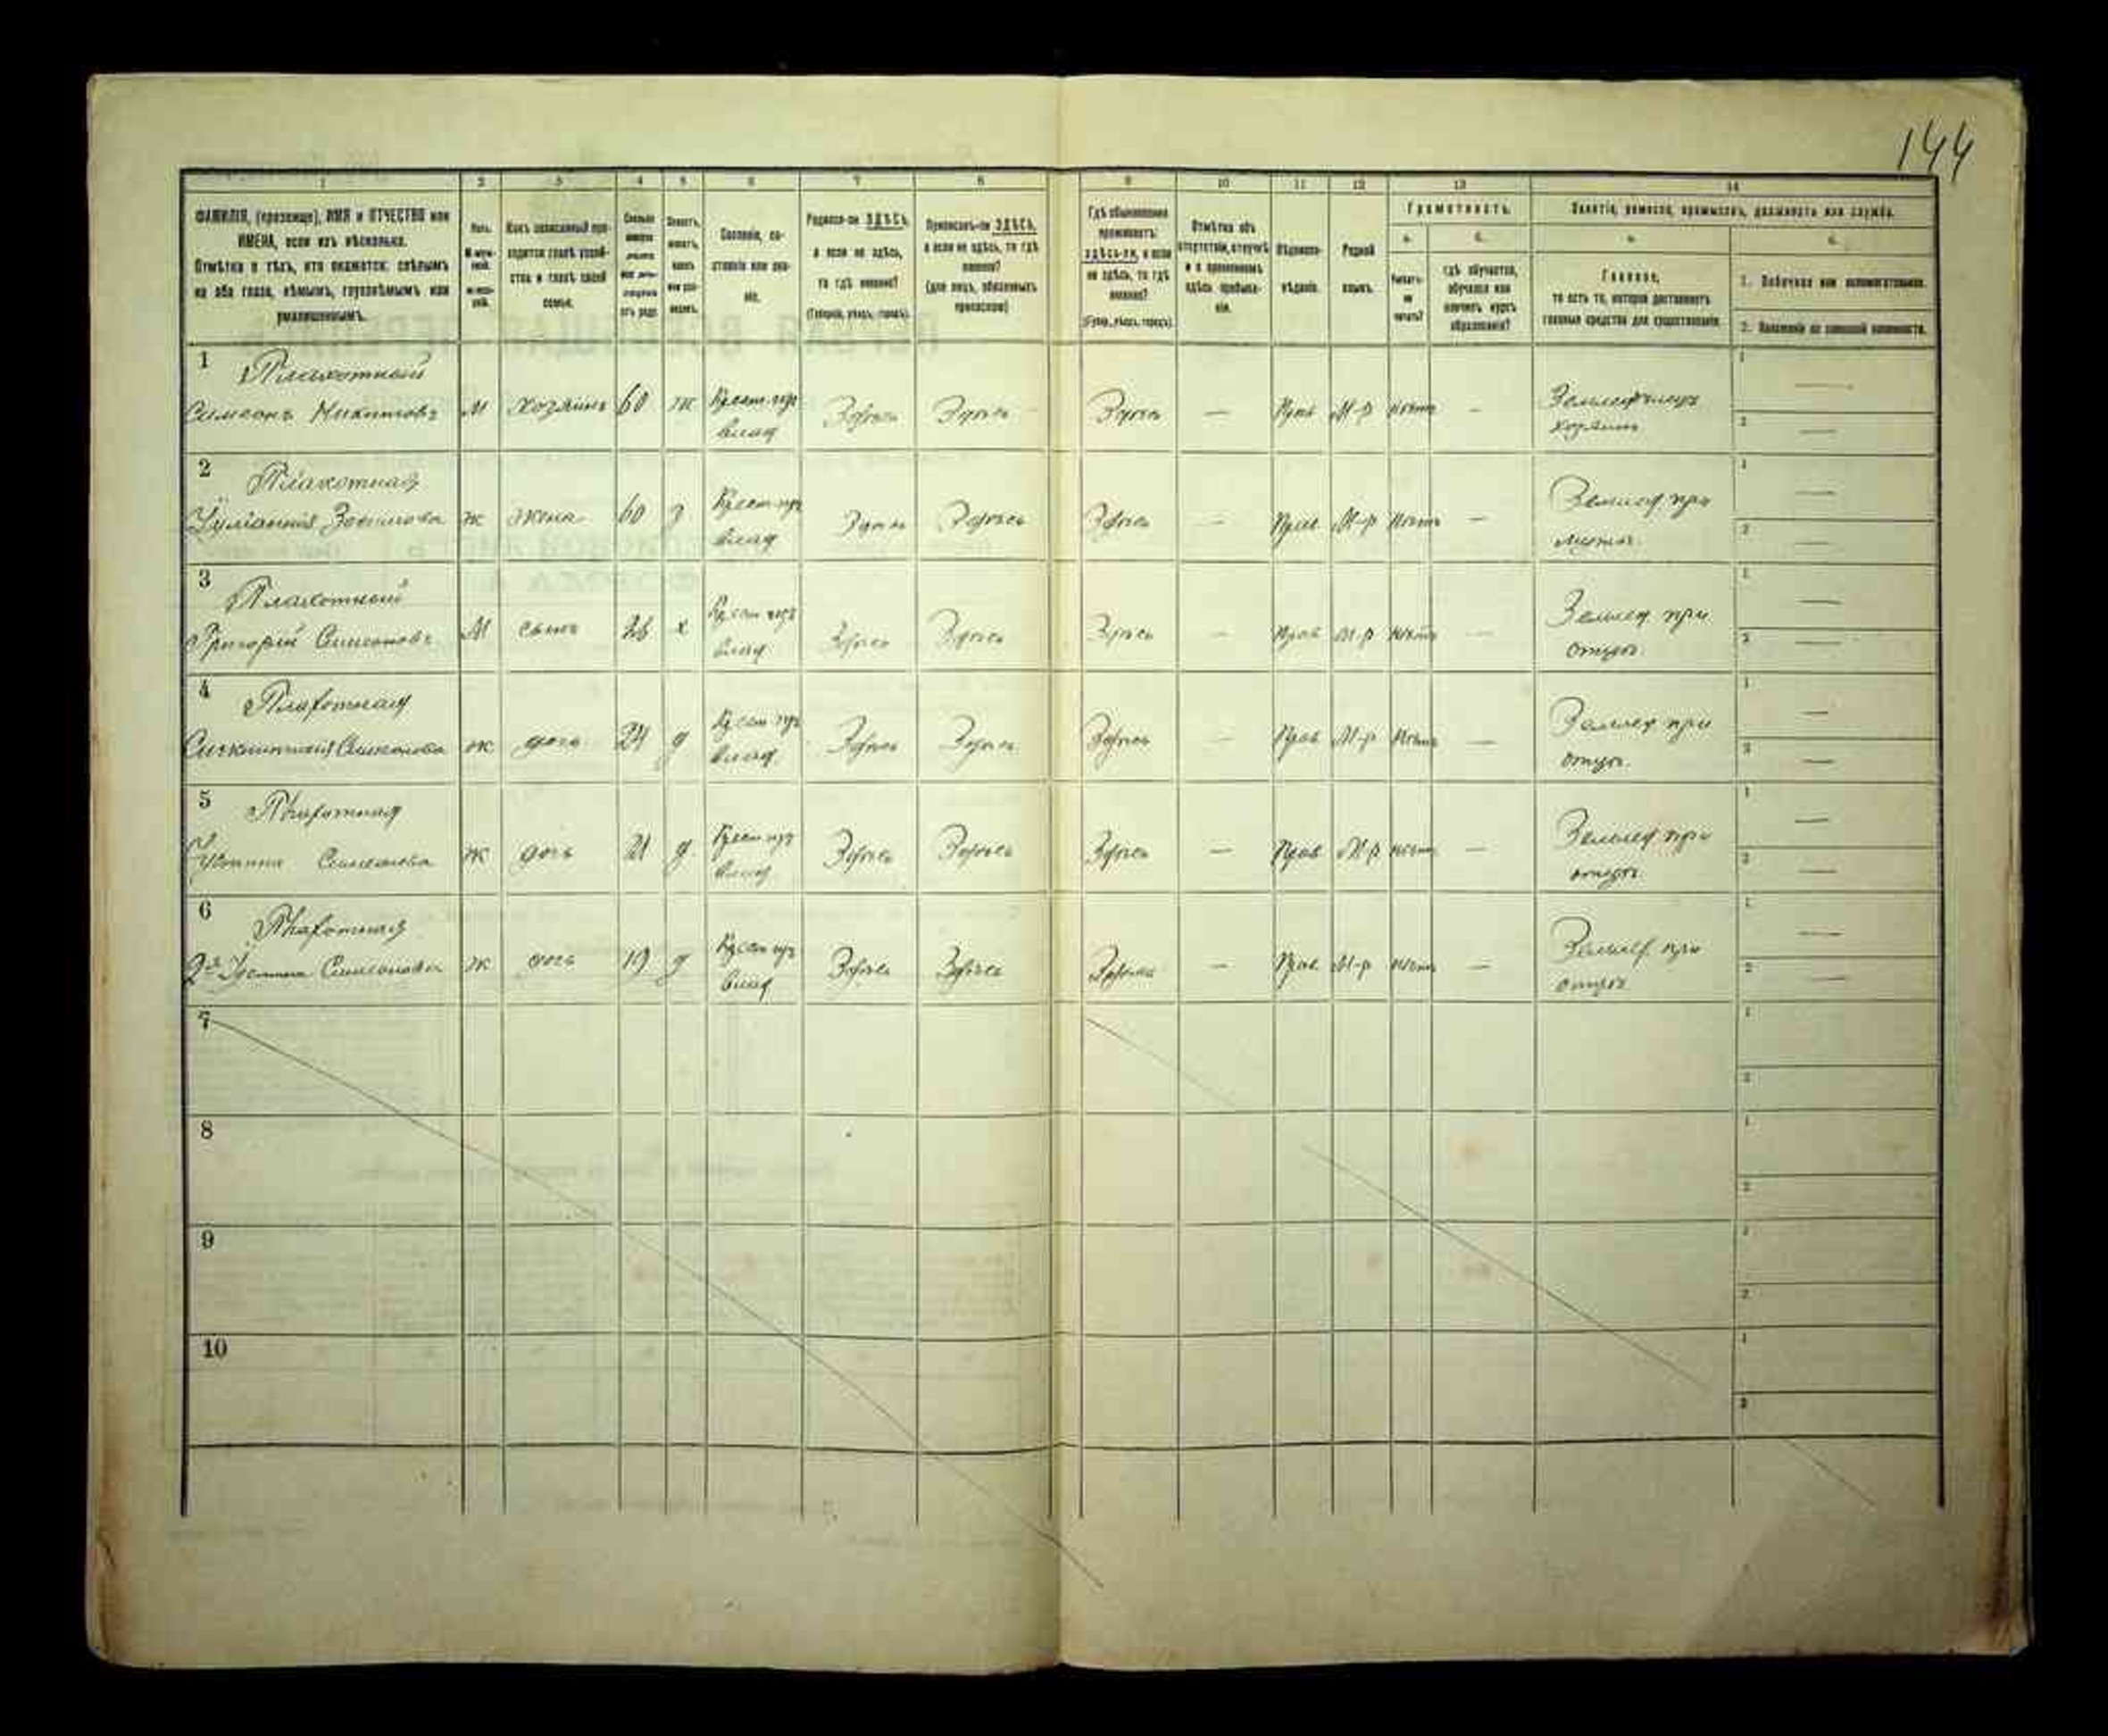 144
1 2 3 4 5 6 7 8 9 10 11 12 13 14
ФАМИЛІЯ, (прозвище), ИМЯ и ОТЧЕСТВО или
ИМЕНА, если ихъ нѣсколько.
Отмѣтка о тѣхъ, кто окажется: слѣпымъ
на оба глаза, нѣмымъ, глухонѣмымъ или
умалишеннымъ.
Полъ.
Какъ записанный при-
ходится главѣ хозяй-
ства и главѣ своей
семьи.
Сословіе, со-
стояніе или зва-
ніе.
Родился-ли ЗДѢСЬ,
а если не здѣсь,
то гдѣ именно?
(Губернія, уѣздъ, городъ).
Приписанъ-ли ЗДѢСЬ,
а если не здѣсь, то гдѣ
именно?
(для лицъ, обязанныхъ
припискою)
Гдѣ обыкновенно
проживаетъ:
здѣсь-ли, а если
не здѣсь, то гдѣ
именно?
(Губер., уѣздъ, городъ).
Отмѣтка объ
отсутствіи, отлучкѣ
и о временномъ
здѣсь пребыва-
ніи.
Вѣроиспо-
вѣданіе.
Родной
языкъ.
Грамотность.
а.
Умѣетъ-
ли
читать?
б.
гдѣ обучается,
обучался или
кончилъ курсъ
образованія?
Занятіе, ремесло, промыслъ, должность или служба.
а.
Главное,
то есть то, которое доставляетъ
главныя средства для существованія.
б.
1. Побочное или вспомогательное.
2. Положеніе по воинской повинности.
1 Плахотный
Симеонъ Никитовъ М хозяинъ 60 ж Крест. Здѣсь Здѣсь Здѣсь — Прав М-р нѣтъ - Земледѣлецъ
влад хозяинъ
2 Плахотная
ж жена 60 з Крест. Здѣсь Здѣсь Здѣсь — Прав М-р нѣтъ — Землед при
влад мужѣ
3 Плахотный
Григорій Симеоновъ М сынъ х Крест. Здѣсь Здѣсь Здѣсь — Прав М-р нѣтъ — Землед при
влад отцѣ.
4 Плахотная
Симеонова ж дочь 24 д Крест. Здѣсь Здѣсь Здѣсь — Прав М-р нѣтъ — Землед при
влад отцѣ.
5 Плахотная
Устина Симеонова ж дочь 21 д Крест. Здѣсь Здѣсь Здѣсь — Прав М-р нѣтъ — Землед при
влад отцѣ
6 Плахотная
2я Устина Симеонова ж дочь 19 д Крест. Здѣсь Здѣсь Здѣсь — Прав М-р нѣтъ — Землед при
влад отцѣ
7
8
9
10